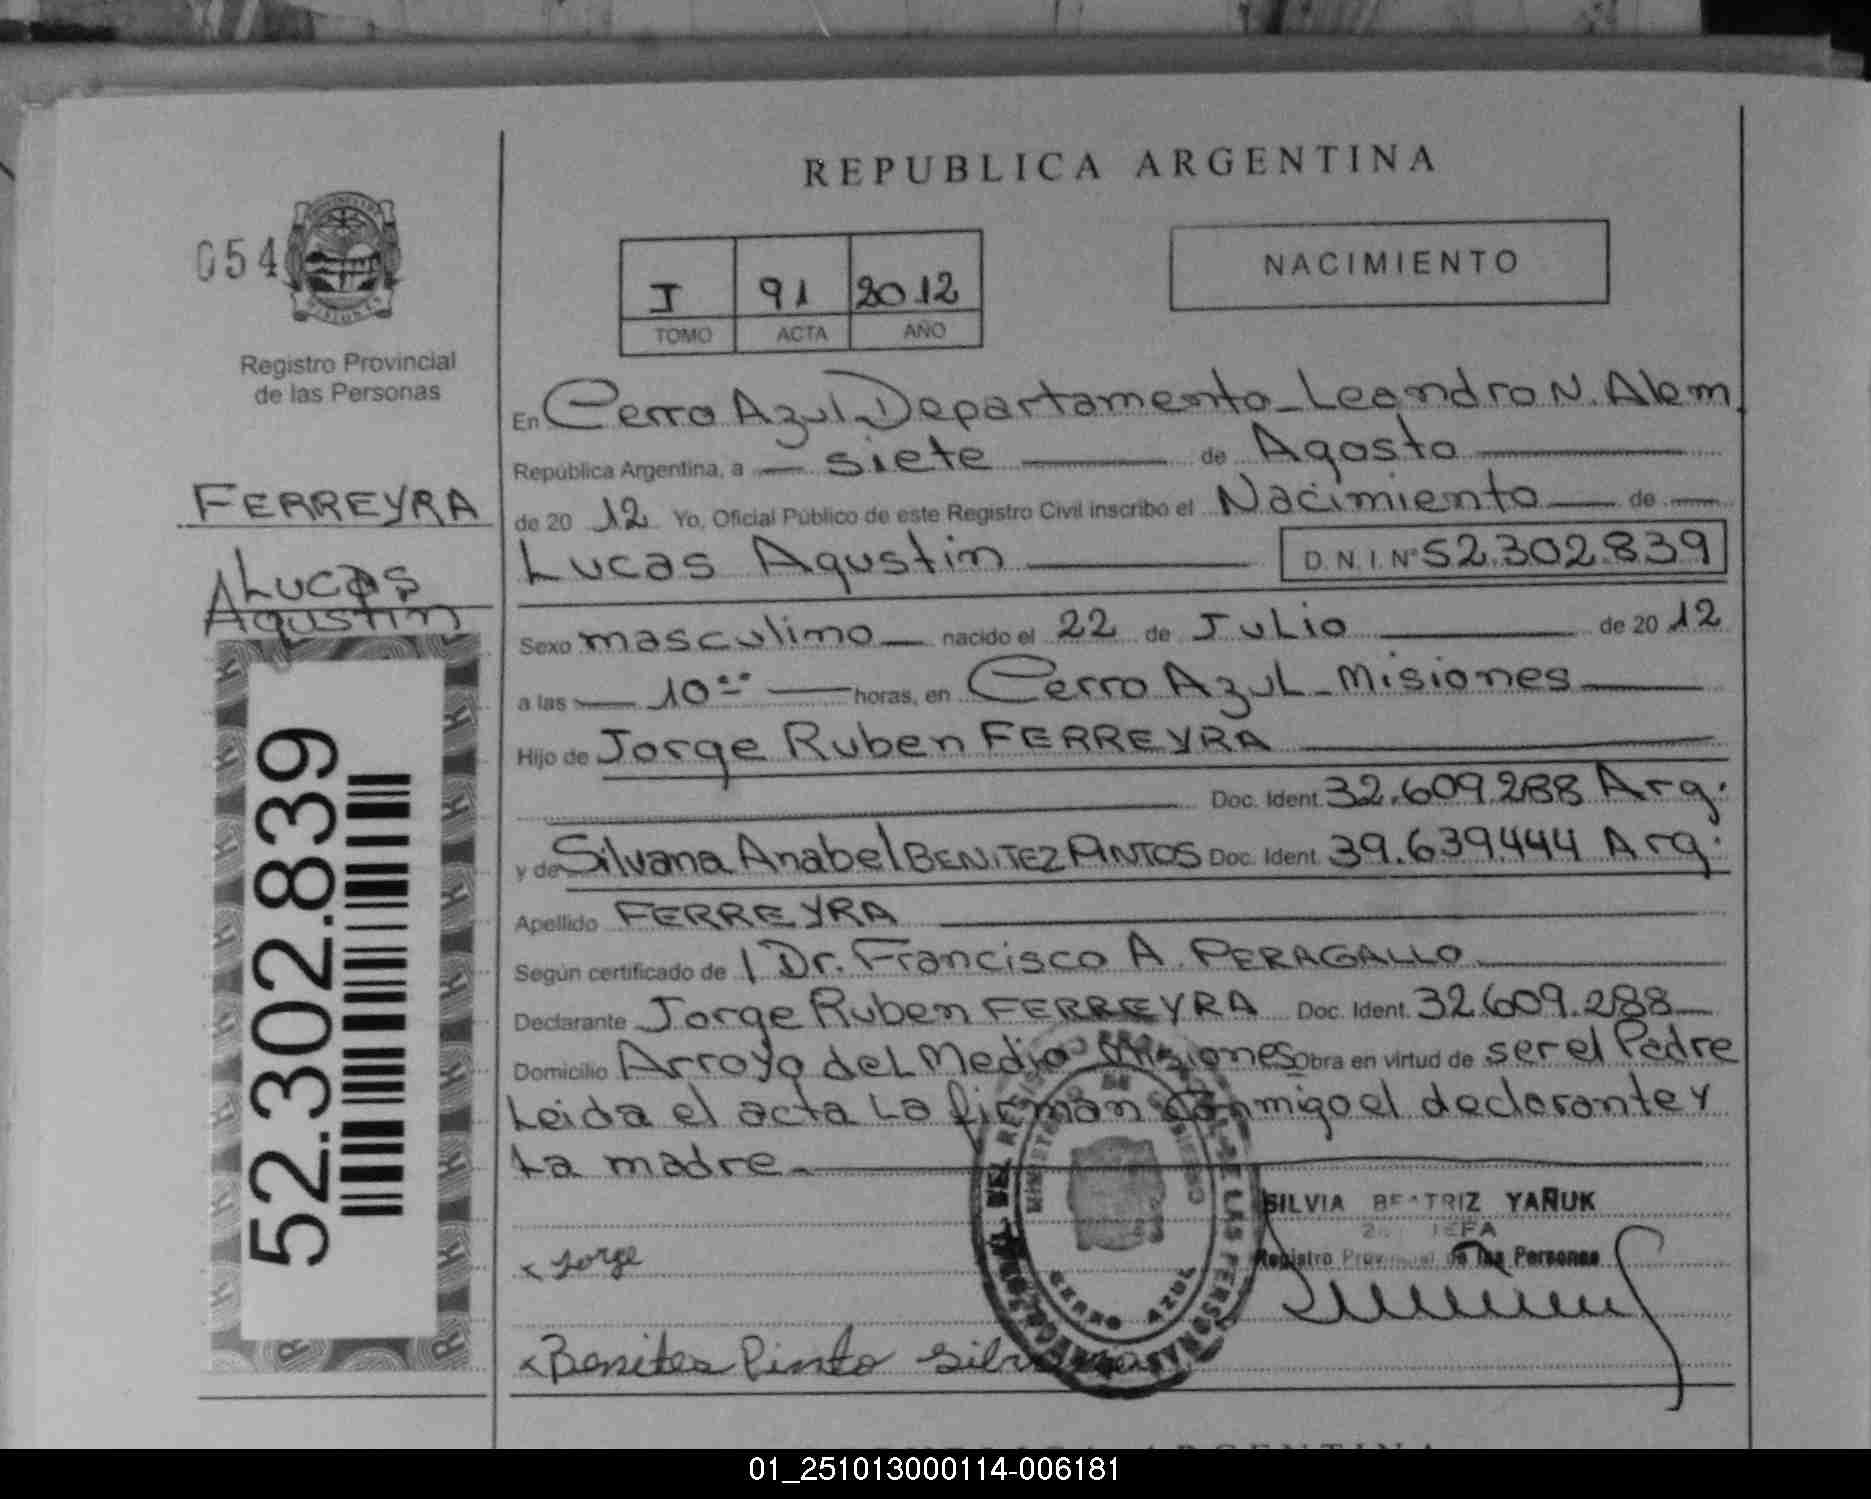 REPUBLICA ARGENTINA
054
PROVINCIA DE MISIONES
Registro Provincial
de las Personas
I 91 2012
TOMO ACTA AÑO
NACIMIENTO
FERREYRA
Lucas
Agustin
52.302.839
En Cerro Azul Departamento Leandro N. Alem
República Argentina, a siete de Agosto
de 2012 Yo, Oficial Público de este Registro Civil inscribo el Nacimiento de
Lucas Agustin D.N.I. Nº 52.302.839
Sexo masculino nacido el 22 de Julio de 2012
a las 10 horas, en Cerro Azul - Misiones
Hijo de Jorge Ruben FERREYRA
Doc. Ident. 32.609.288 Arg.
y de Silvana Anabel BENITEZ PINTOS Doc. Ident. 39.639.444 Arg.
Apellido FERREYRA
Según certificado de Dr. Francisco A. PERAGALLO
Declarante Jorge Ruben FERREYRA Doc. Ident. 32.609.288
Domicilio Arroyo del Medio Misiones Obra en virtud de ser el Padre
Leida el acta La firman conmigo el declarante y
La madre
SILVIA BEATRIZ YAÑUK
JEFA
Registro Provincial de las Personas
x Jorge
x Benites Pinto
CERRO AZUL
01_251013000114-006181